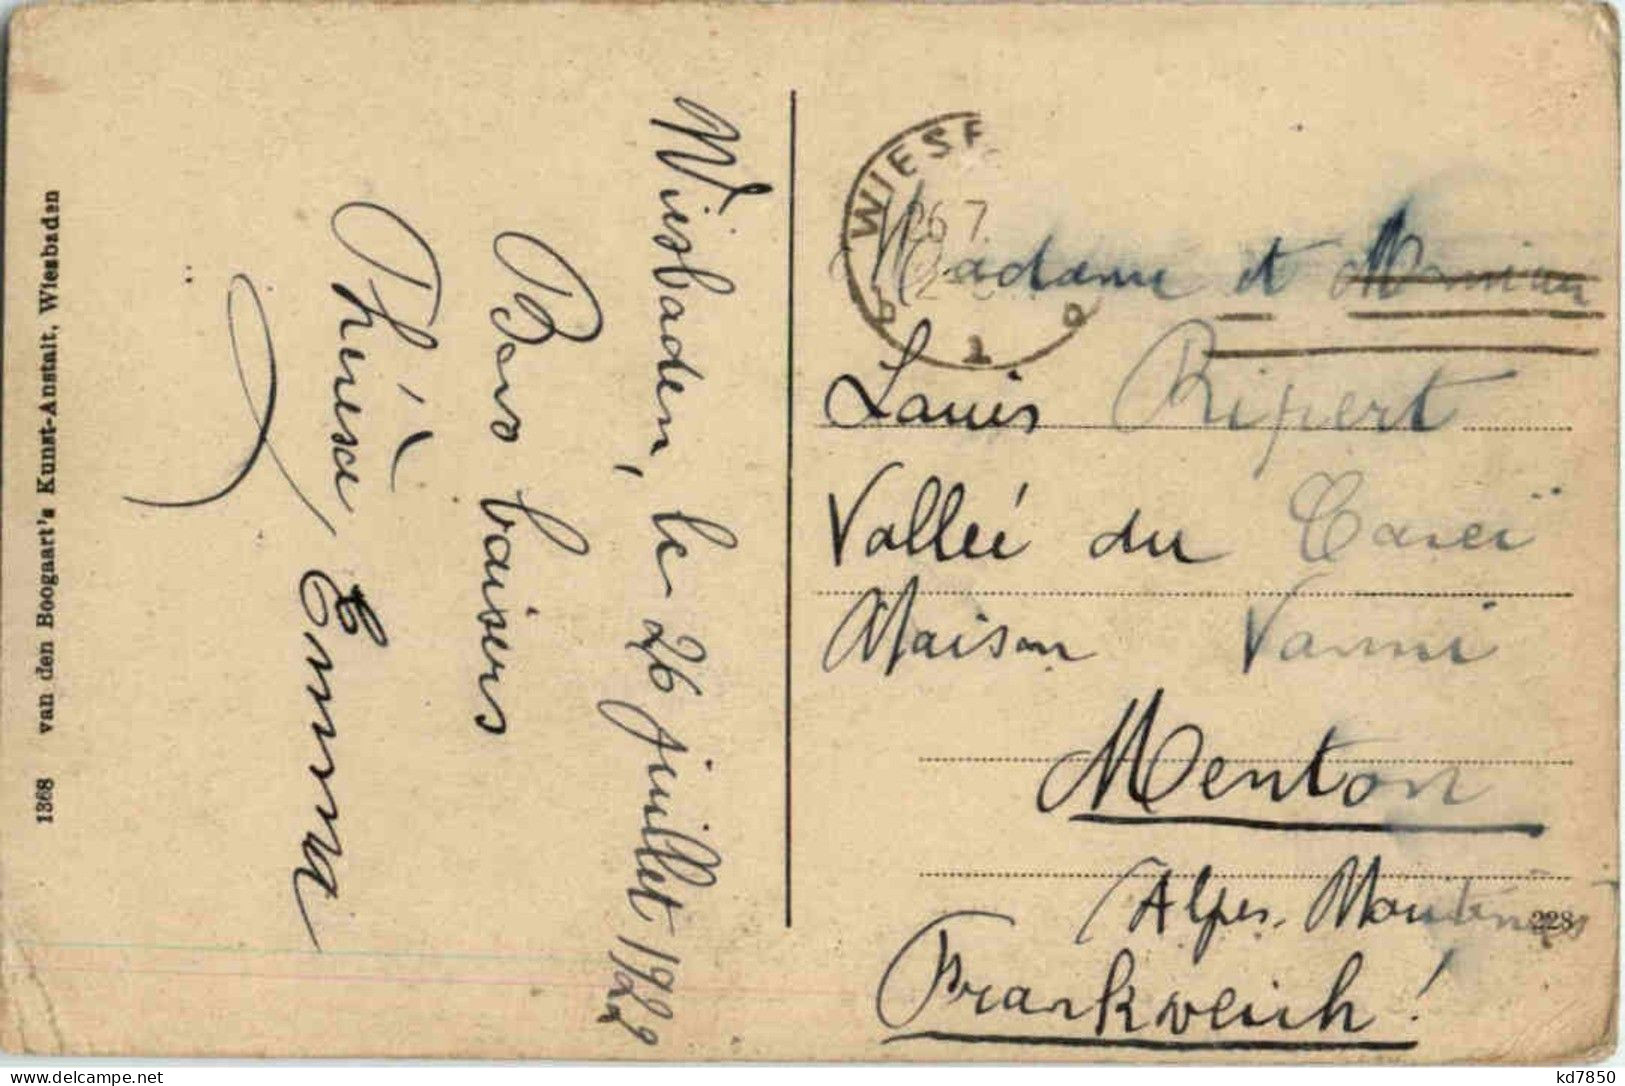 Wiesbaden, le 26 juillet 1922
Bons baisers
Thérèse, Emma
1368 van den Boogaart's Kunst-Anstalt, Wiesbaden
WIESB
26 7
1
Madame et Monsieur
Louis Ripert
Vallée du Careï
Maison Vanni
Menton
Alpes. Maritimes
228
Frankreich!
kd7850